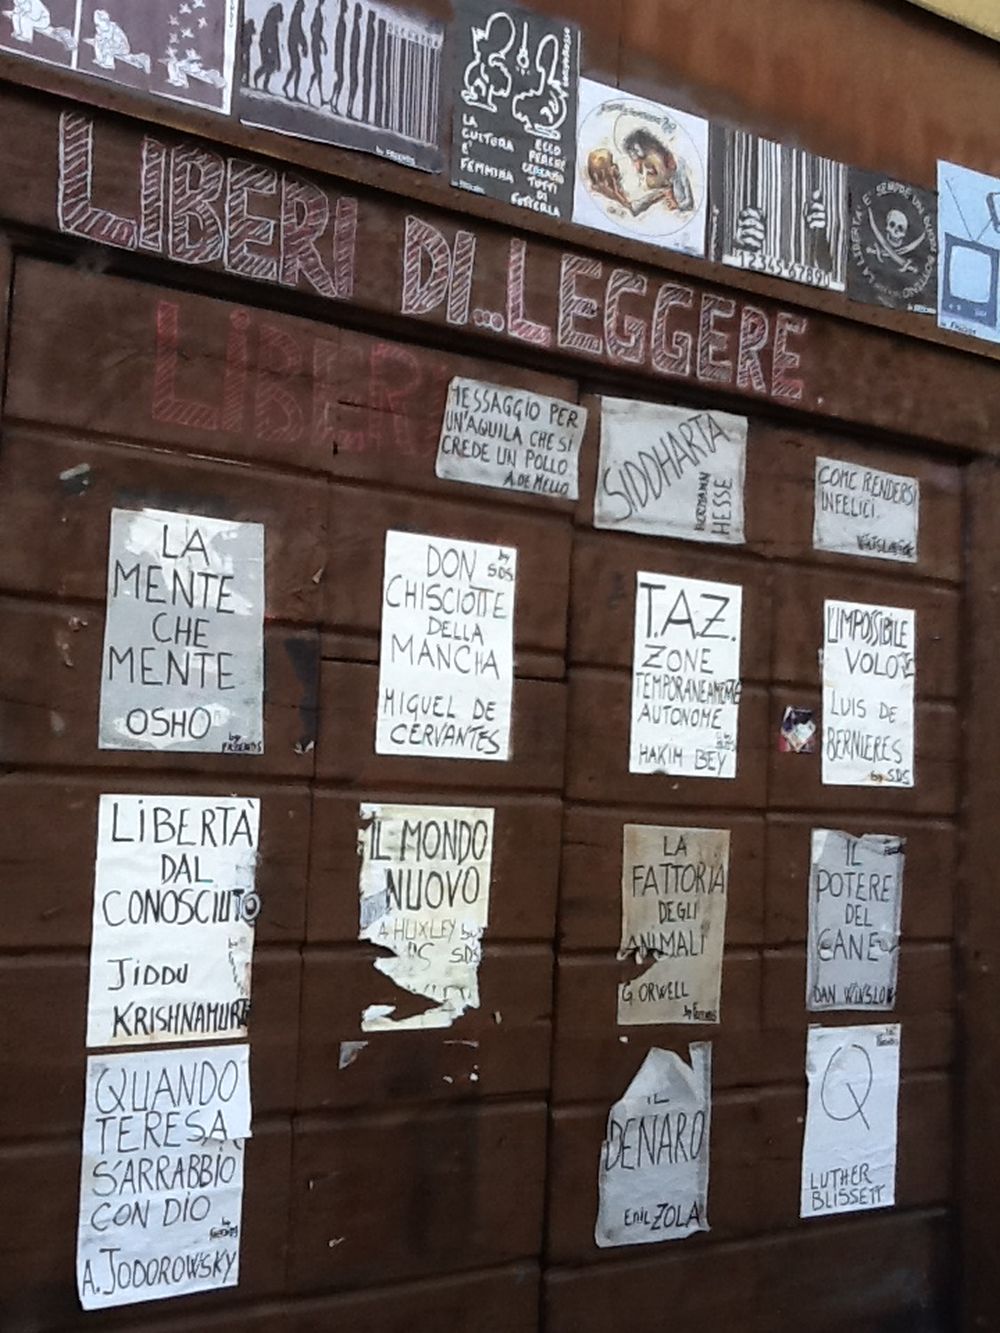 LA
CULTURA
E'
FEMMINA
ECCO
PERCHÉ
CERCANO
TUTTI
DI
FOTTERLA
1234567890
LA LIBERTA' E' SEMPRE UN BUON BOTTINO
LIBERI DI...LEGGERE
LIBERI
MESSAGGIO PER
UN'AQUILA CHE SI
CREDE UN POLLO.
A. DE MELLO
SIDDHARTA
HERMANN
HESSE
COME RENDERSI
INFELICI.
LA
MENTE
CHE
MENTE
OSHO
by
DON by
SDS
CHISCIOTTE
DELLA
MANCHA
MIGUEL DE
CERVANTES
T.A.Z.
ZONE
TEMPORANEAMENTE
AUTONOME
by
HAKIM BEY
L'IMPOSSIBILE
VOLO
LUIS DE
BERNIERES
by SDS
LIBERTÀ
DAL
CONOSCIUTO
JIDDU
KRISHNAMURTI
IL MONDO
NUOVO
A HUXLEY by
SDS
LA
FATTORIA
DEGLI
ANIMALI
G. ORWELL
by
IL
POTERE
DEL
CANE
DAN WINSLOW
QUANDO
TERESA
S'ARRABBIÒ
CON DIO
by
A. JODOROWSKY
IL
DENARO
EMIL ZOLA
Q
LUTHER
BLISSETT